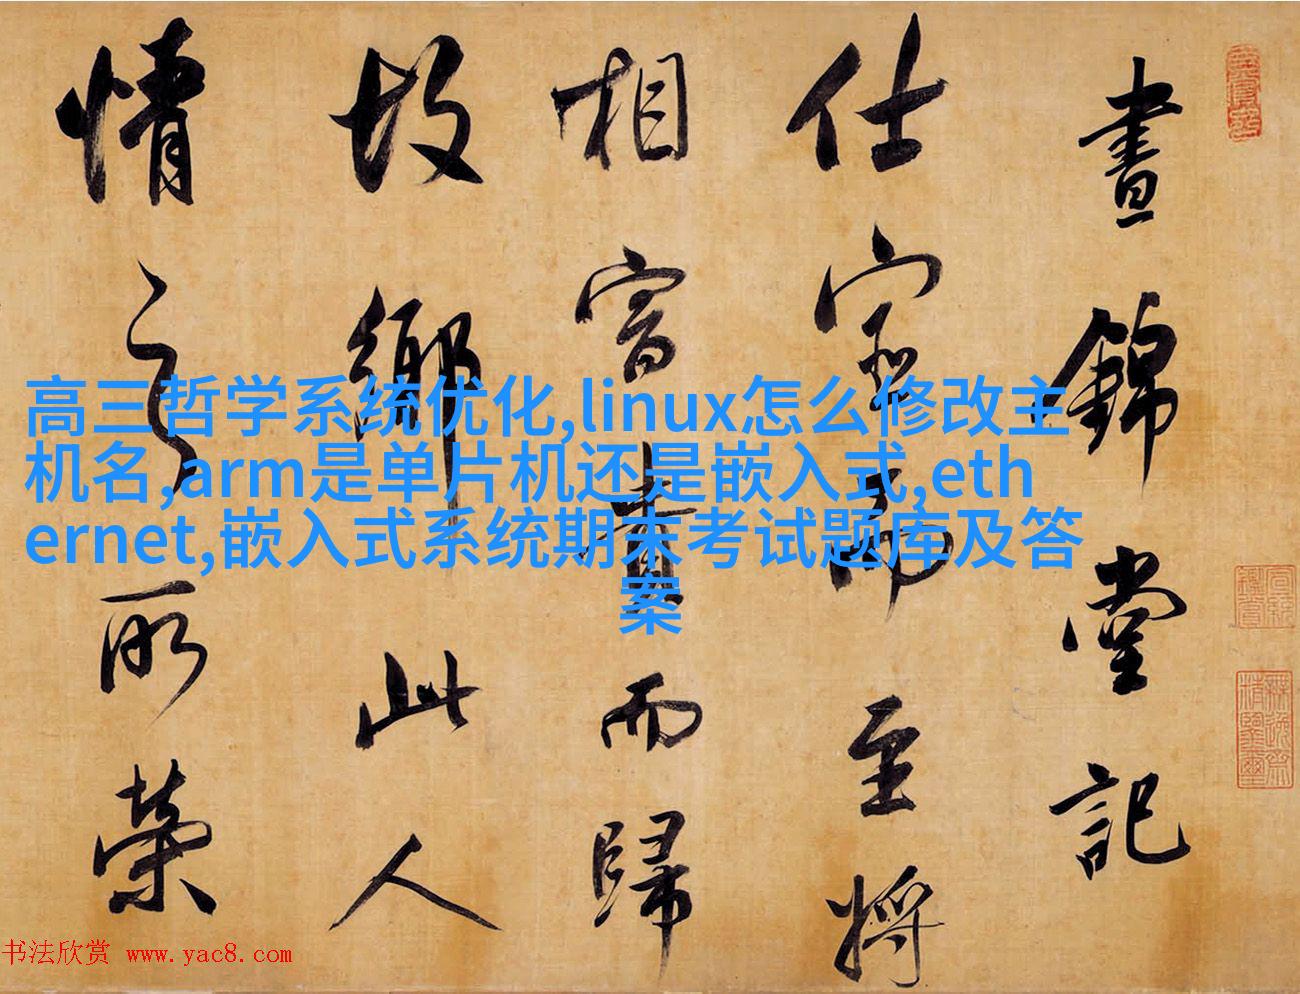 晝錦堂記
仕宦而至將
相富貴而歸
故鄉此人
情之所榮
高三哲学系统优化,linux怎么修改主
机名,arm是单片机还是嵌入式,eth
ernet,嵌入式系统期末考试题库及答
案
书法欣赏 www.yac8.com